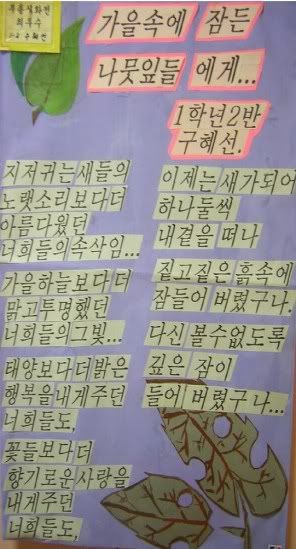 가을속에 잠든
나뭇잎들 에게...
1학년2반
구혜선.
지저귀는새들의
노랫소리보다더
아름다웠던
너희들의속삭임...
가을하늘보다 더
맑고투명했던
너희들의그빛...
태양보다더밝은
행복을내게주던
너희들도,
꽃들보다더
향기로운사랑을
내게주던
너희들도,
이제는새가되어
하나둘씩
내곁을떠나
짙고짙은 흙속에
잠들어 버렸구나.
다신 볼수없도록
깊은 잠이
들어 버렸구나...